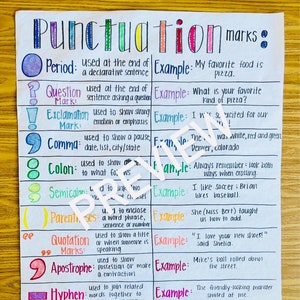 Punctuation marks:
Period: used at the end of a declarative sentence
Example: My favorite food is pizza.
Question Mark: used at the end of sentence asking a question
Example: What is your favorite kind of pizza?
Exclamation Mark: used to show strong emotion or emphasis
Example: I excited for our
Comma: used to show a pause, date, list, city/state
Example: The white, red, and green. Denver, Colorado
Colon: used to show
Example: Always remember: look both ways when crossing.
Semicolon: used to
Example: I like soccer; Brian likes baseball.
Parentheses: used to enclose a word, phrase, sentence or number
Example: She (Miss Bert) taught us how to add.
Quotation Marks: used to show a title or when someone is speaking
Example: "I love your new shoes!" said Sheila.
Apostrophe: used to show possession or make a contraction
Example: Mike's ball rolled down the street.
Hyphen: used to join related words together to
Example: The friendly-looking monster smiled at
PREVIEW